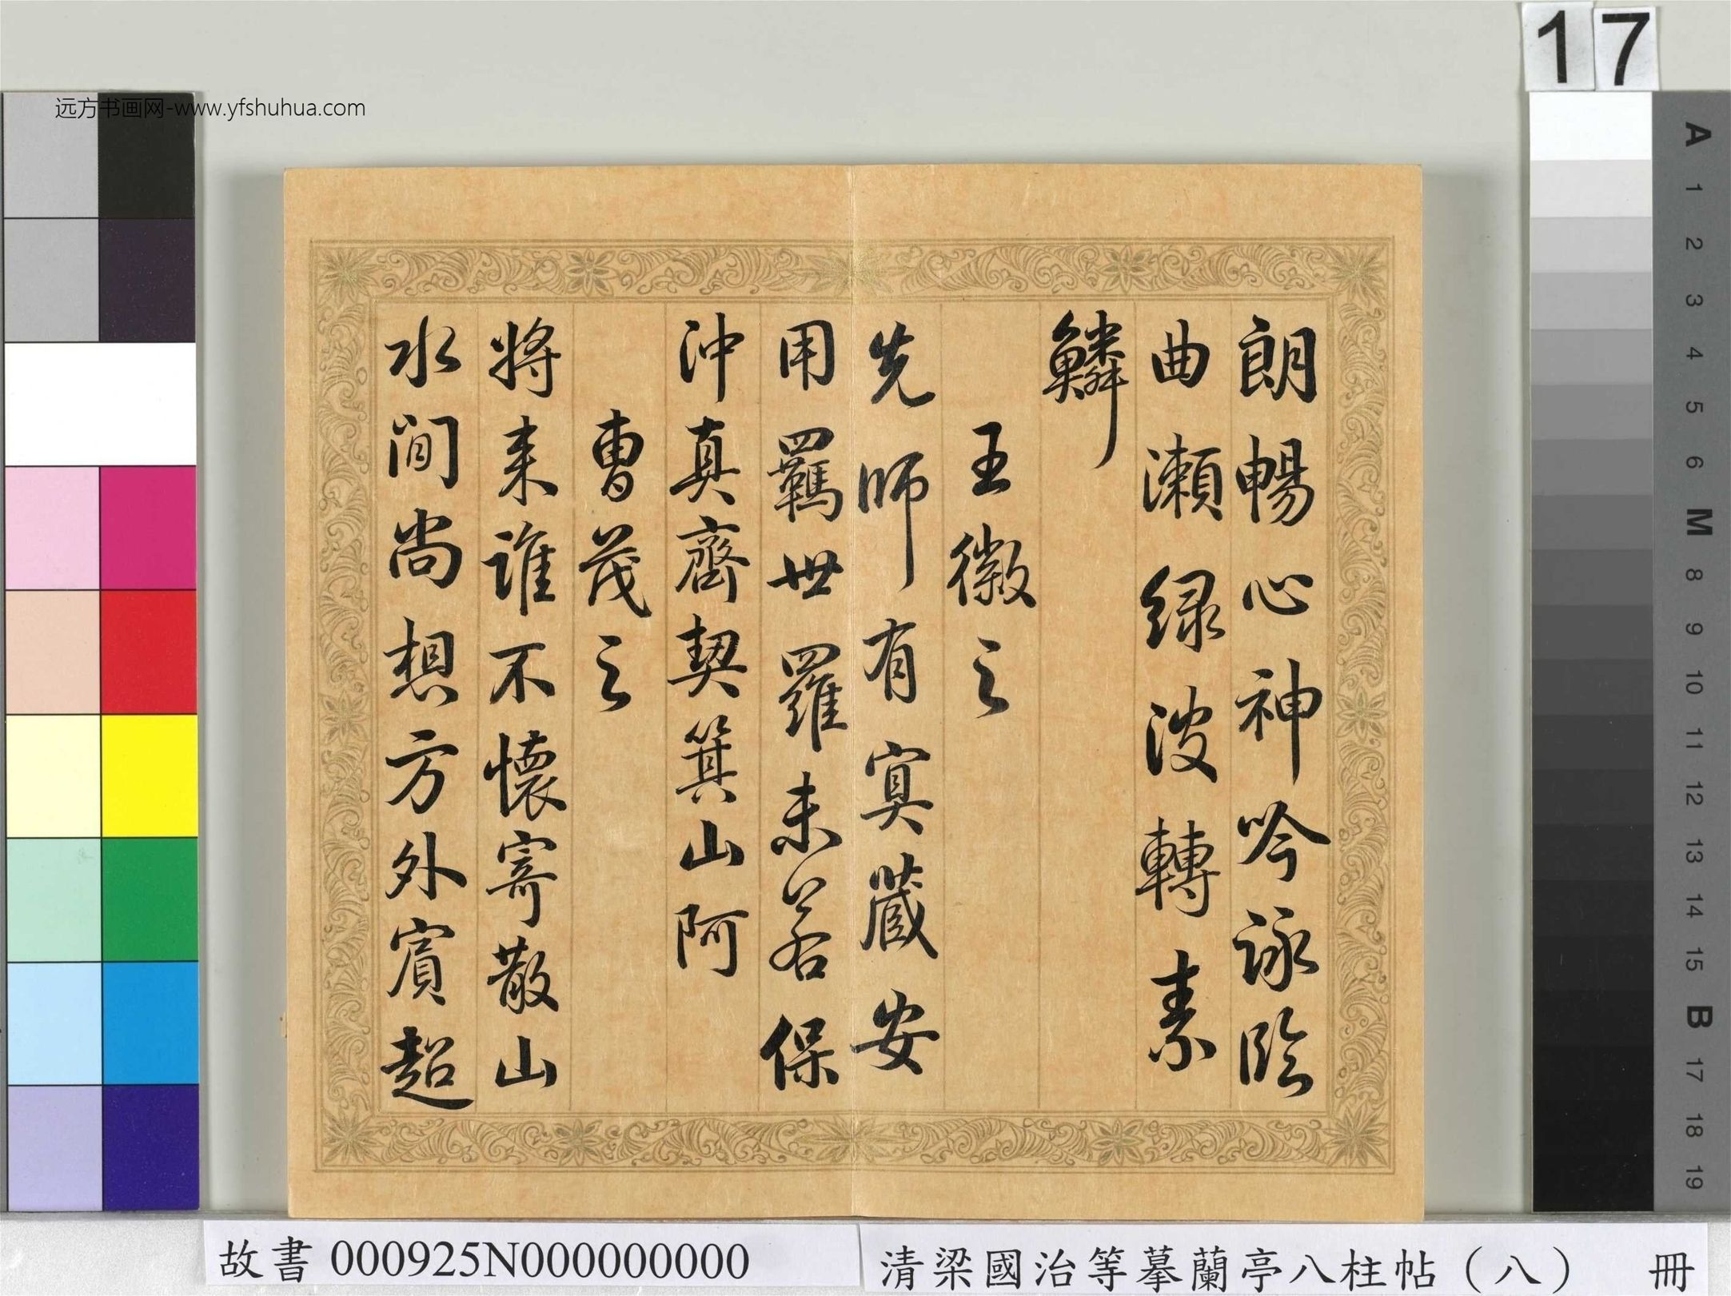 远方书画网-www.yfshuhua.com
17
朗暢心神吟詠臨
曲瀨綠波轉素
鱗
王徽之
先師有冥藏安
用羈世羅未若保
沖真齊契箕山阿
曹茂之
將來誰不懷寄散山
水間尚想方外賓超
A
1
2
3
4
5
6
M
8
9
10
11
12
13
14
15
B
17
18
19
故書 000925N000000000
清梁國治等摹蘭亭八柱帖（八） 冊